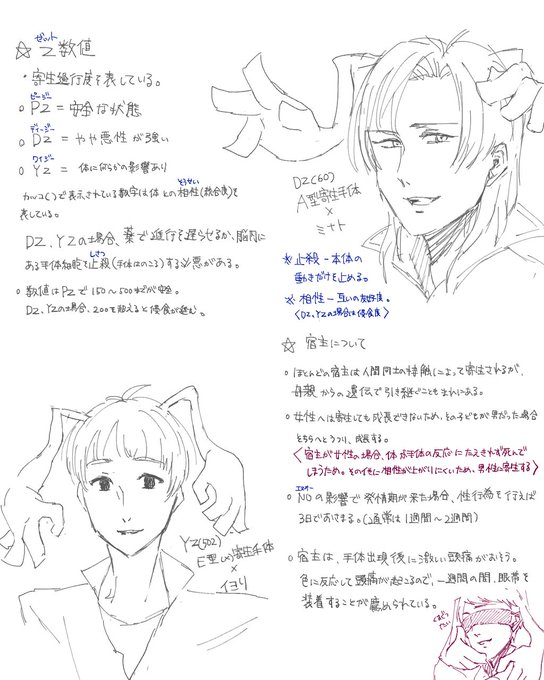 ゼット
☆ Z数値
・寄生進行度を表している。
ピージー
○ PZ = 安全な状態
ディージー
○ DZ = やや悪性が強い
ワイジー
○ YZ = 体に何らかの影響あり
カッコ( )で表示されている数字は体との相性(融合度)を
表している。
DZ、YZの場合、薬で進行を遅らせるか、脳内に
ある手体細胞を止殺(手体はのこる)する必要がある。
○ 数値はPZで150〜500までが安全。
DZ、YZの場合、200を超えると侵食が進む。
DZ(60)
A型寄生手体
×
ミナト
※ 止殺ー本体の
動きだけを止める。
※ 相性ー互いの友好度。
〈DZ、YZの場合は侵食度〉
☆ 宿主について
○ ほとんどの宿主は人間同士の接触によって寄生されるが、
母親からの遺伝で引き継ぐこともまれにある。
○ 女性へは寄生しても成長できないため、その子どもが男だった場合
そちらへとうつり、成長する。
〈宿主が女性の場合、体が手体の反応にたえきれず死んで
しまうため。その他に相性が上がりにくいため、男性に寄生する〉
○ NOの影響で発情期が来た場合、性行為を行えば
3日でおさまる。(通常は1週間〜2週間)
○ 宿主は、手体出現後に激しい頭痛がおそう。
色に反応して頭痛が起こるので、一週間の間、眼帯を
装着することが薦められている。
YZ(502)
E型(X)寄生手体
×
イヨリ